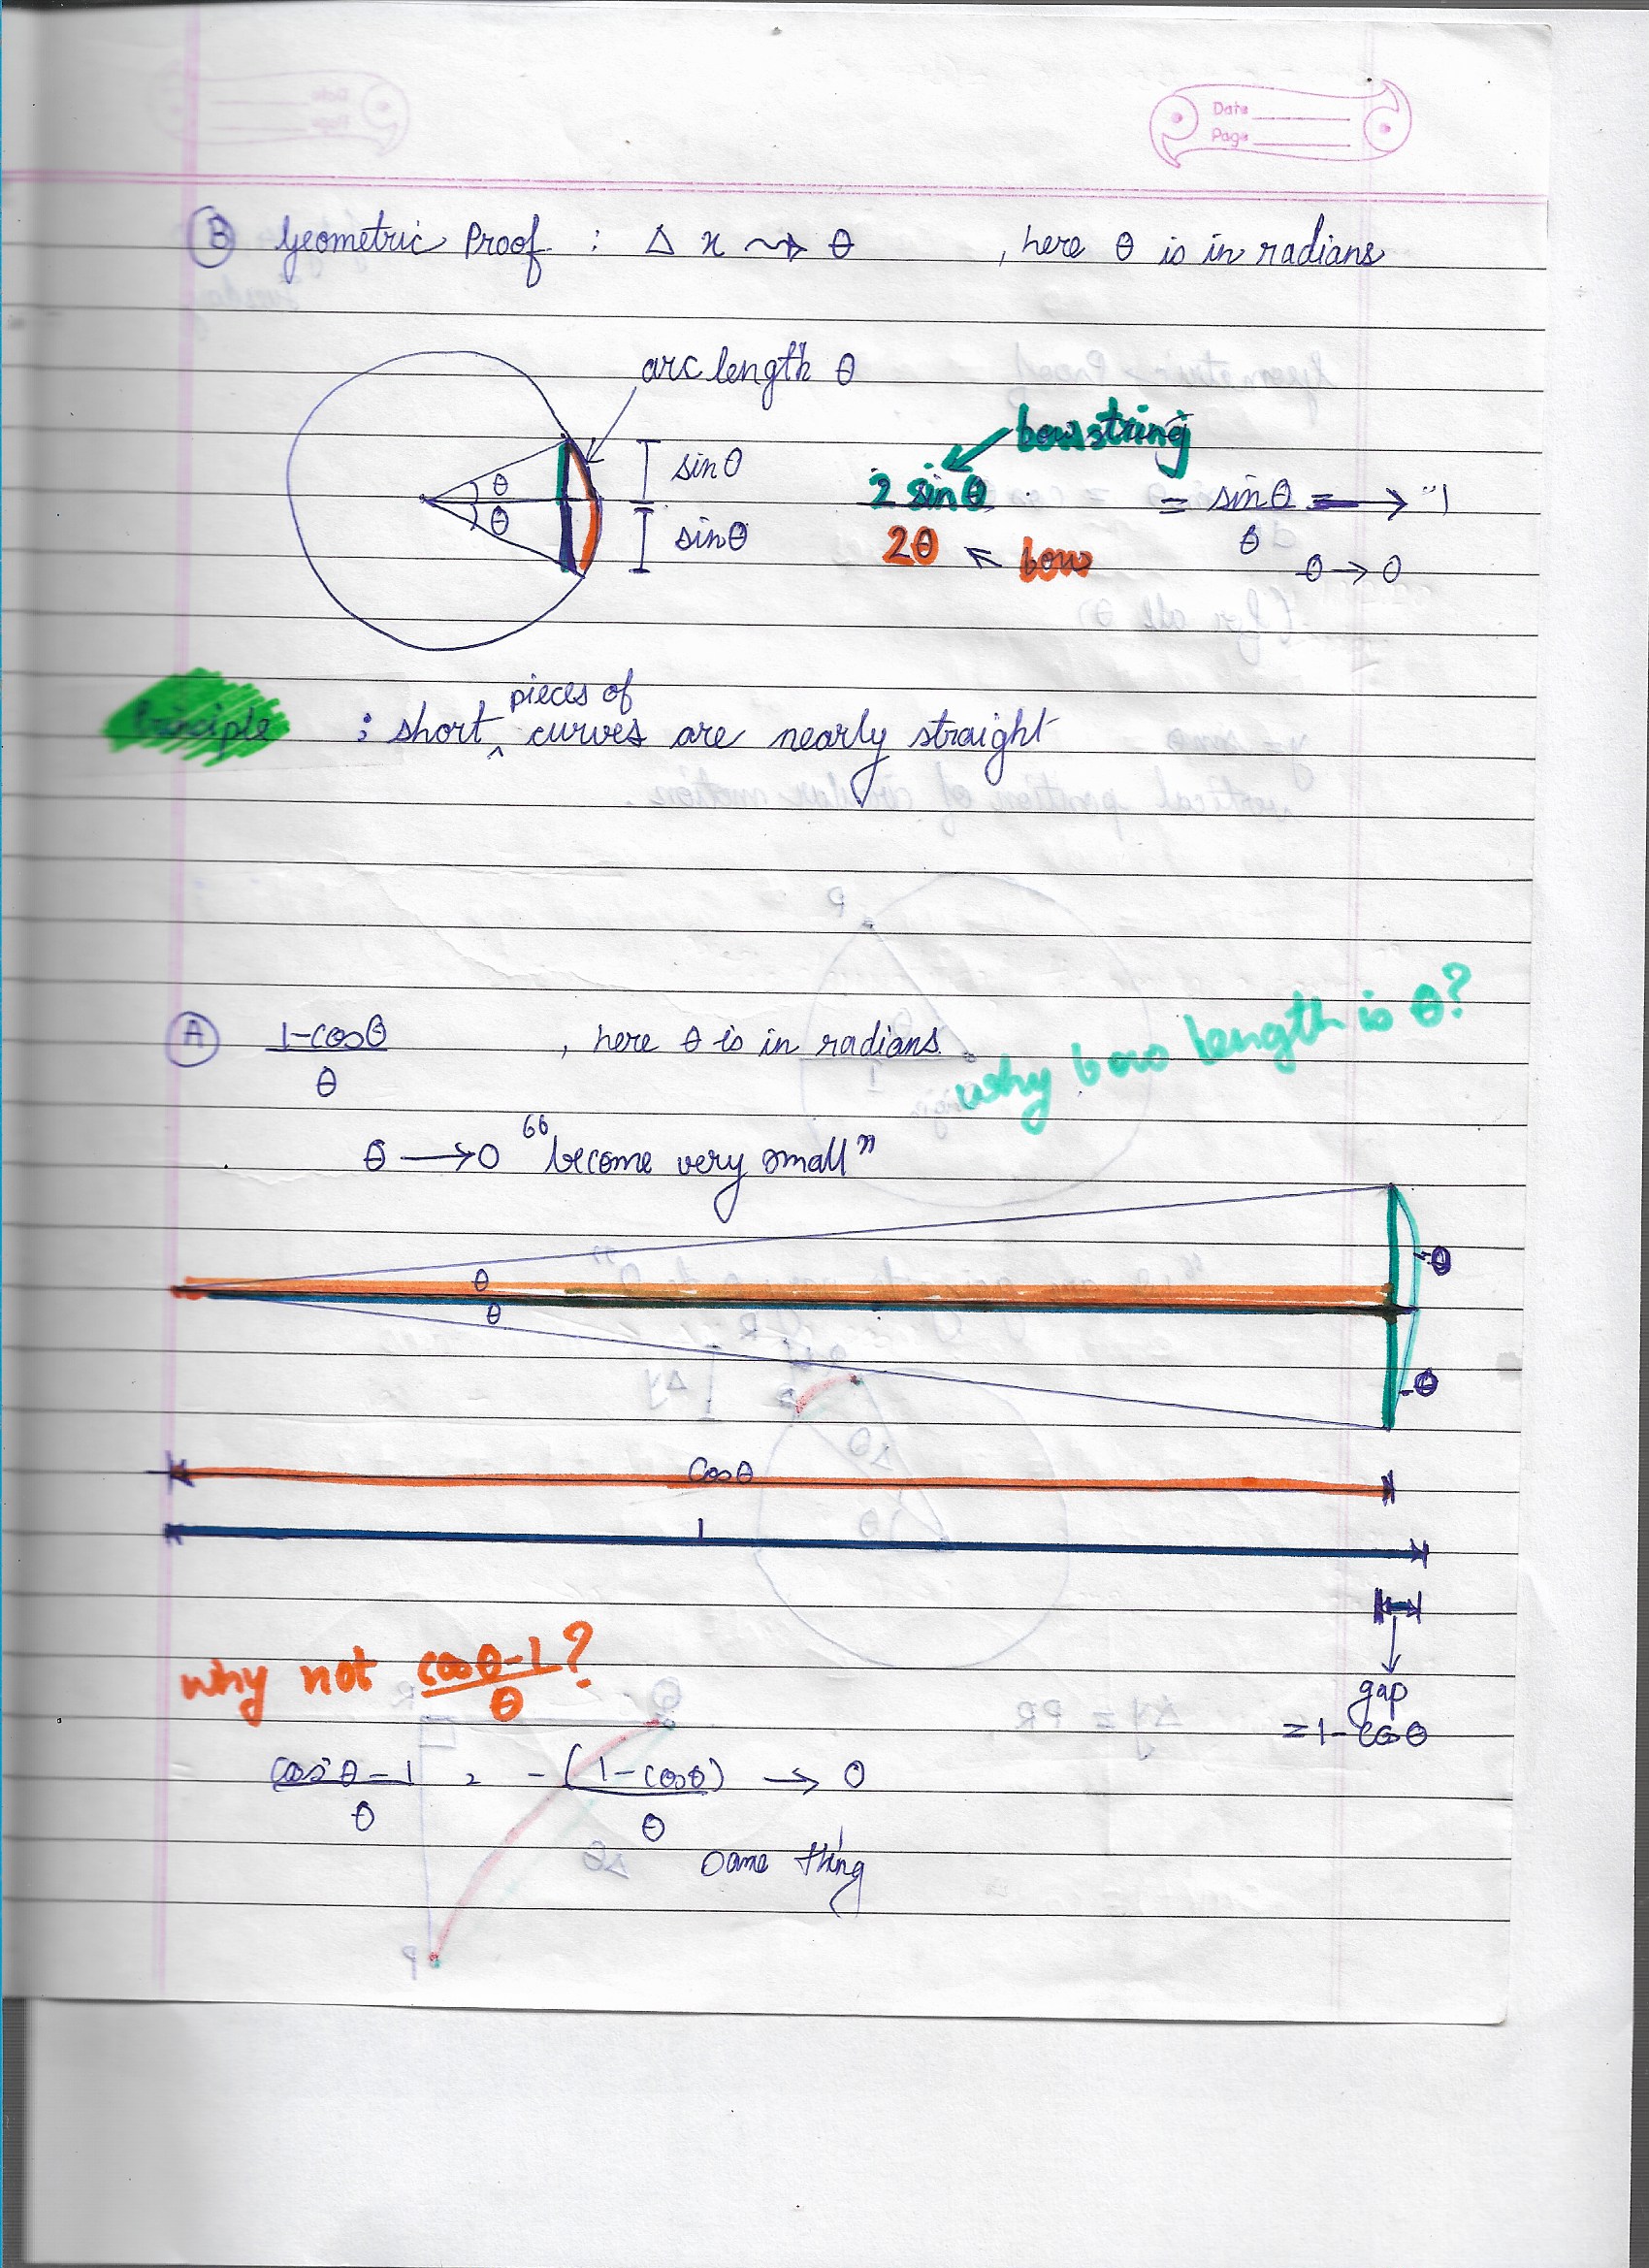 Date
Page
B Geometric Proof : Δx ⇝ θ , here θ is in radians
arc length θ
bowstring
θ
θ
sinθ
sinθ
2 sinθ
2θ ← bow
= sinθ = → 1
θ
θ → 0
Principle : short pieces of curves are nearly straight
A 1-cosθ , here θ is in radians
θ
why bow length is θ?
θ → 0 "become very small"
θ
θ
θ
θ
cosθ
1
why not cosθ-1?
θ
gap
= 1- cosθ
cosθ-1 , -(1-cosθ) → 0
θ
θ
Same thing